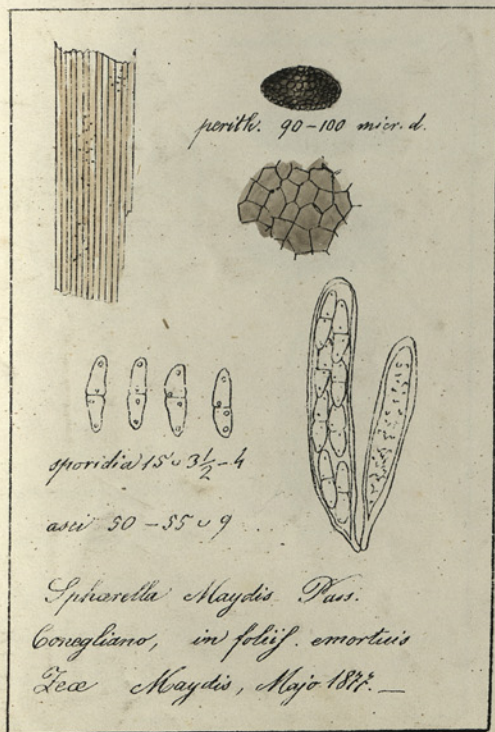 perith. 90-100 micr. d.
sporidia 15 ᴗ 3 1/2 - 4
asci 50-55 ᴗ 9
Sphærella Maydis Pass.
Conegliano, in foliis. emortuis
Zeæ Maydis, Majo 1877. _